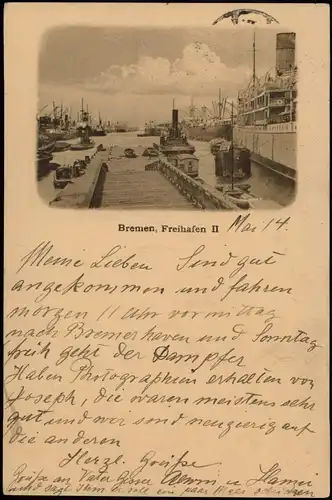 Bremen, Freihafen II
Mai 14
Meine Lieben Sind gut
angekommen und fahren
morgen 11 Uhr vormittag
nach Bremerhaven und Sonntag
früh geht der Dampfer
Haben Photographien erhalten von
Joseph, die waren meistens sehr
gut und wir sind neugierig auf
die anderen
Herzl. Grüße
Grüße an Vater
und sagt Ihm er soll ein paar